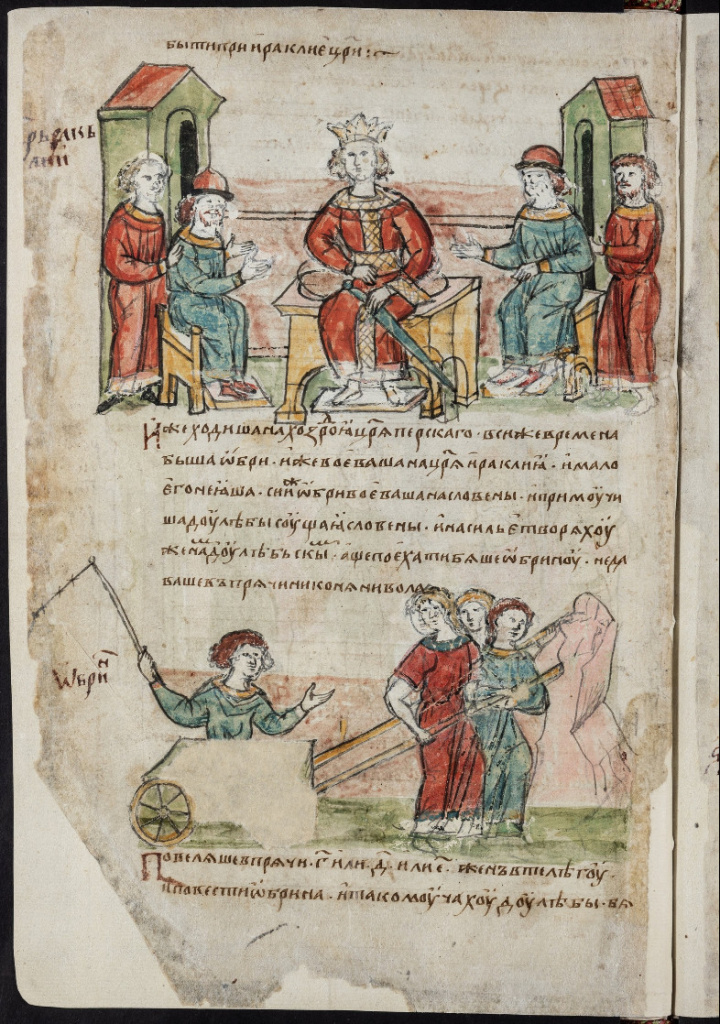 быти при ираклие цр҃и :~
Иже ходиша на хоздроꙗ цр҃ѧ перскаго · в си же времена
быша ѡ҆бри · иже воеваша на цр҃ѧ ираклиꙗ · и мало
его не ꙗша · сии же ѡ҆бри воеваша на словены · и примоучи
ша доулѣбы соущаꙗ словены · и насилье творѧхоу
женамъ доулѣбьскымъ · аще поехати бѧше ѡ҆бриноу · не дад
ваше въпрѧчи ни конѧ ни вола
ѡ҆брин
Повелѧше въпрѧчи · г҃ · или · д҃ · или е҃ · женъ в телѣгоу ·
и повести ѡ҆брина · и тако моучахоу доулѣбы · бѧ